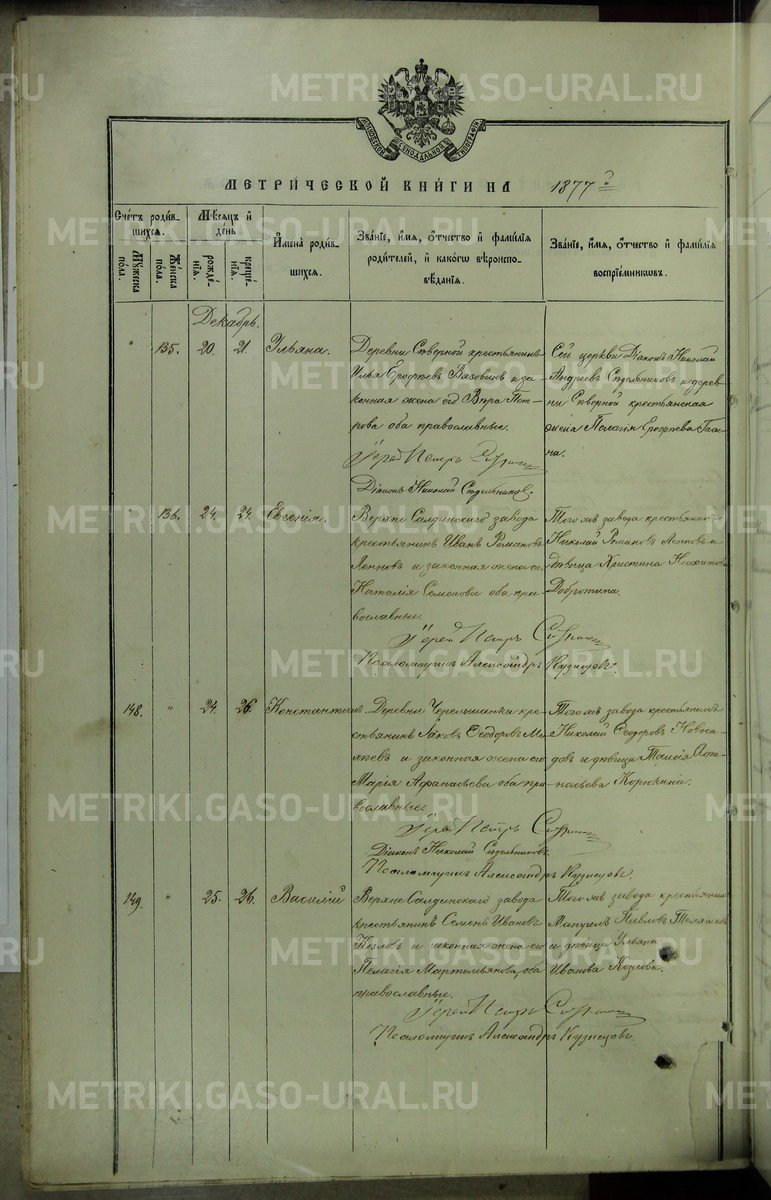 МЕТРИ́ЧЕСКОЙ КНИ́ГИ НА 1877 й
Сче́тъ роди́в-
шихся.
Му́жеска по́ла.
Же́нска по́ла.
Мѣ́сяцъ и́ де́нь
рожде́-
нїя.
креще́-
нїя.
И҆мена̀ роди́в-
шихся.
Зва́нїе, и҆́мя, о҆́тчество и҆ фами́лїя
роди́телей, и҆ како́гѡ вѣроиспо-
вѣ́данїя.
Зва́нїе, и҆́мя, о҆́тчество и҆ фами́лїя
воспрїе́мникѡвъ.
Декабрь.
" 135. 20. 21. Ульяна.
Деревни Сѣверной крестьянинъ
Илья Ерофѣевъ Вязовинъ и за-
конная жена его Вѣра Пет-
рова оба православные.
Іерей Петръ
Діаконъ Николай Сѣдельниковъ.
Сей церкви Діаконъ Николай
Андреевъ Сѣдельниковъ и дерев-
ни Сѣверной крестьянская
жена Пелагія Ерофѣева
на.
" 136. 24. 24. Евгенія.
Верхне Салдинскаго завода
крестьянинъ Иванъ Романовъ
и законная жена его
Наталія Семенова оба пра-
вославные.
Іерей Петръ
Псаломщикъ Александръ Кузнецовъ.
Того же завода крестьянинъ
Николай Романовъ и
дѣвица Христина
Добротина.
148. " 24. 26. Константинъ.
Деревни кре-
стьянинъ Яковъ Ѳеодоровъ Ма-
и законная жена его
Марія Афанасьева оба пра-
вославные.
Іерей Петръ
Діаконъ Николай Сѣдельниковъ.
Псаломщикъ Александръ Кузнецовъ.
Того же завода крестьянинъ
Николай Ѳеодоровъ Новоса-
довъ и дѣвица Таисія Афа-
насьева
149. " 25. 26. Василій
Верхне Салдинскаго завода
крестьянинъ Семенъ Ивановъ
Козловъ и законная жена его
Пелагія Мартемьянова оба
православные.
Іерей Петръ
Псаломщикъ Александръ Кузнецовъ.
Того же завода крестьянинъ
Павловъ
и дѣвица Ульяна
Иванова Козлова.
METRIKI.GASO-URAL.RU